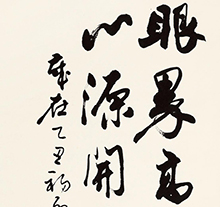 眼界高
心源開
歲在乙丑初